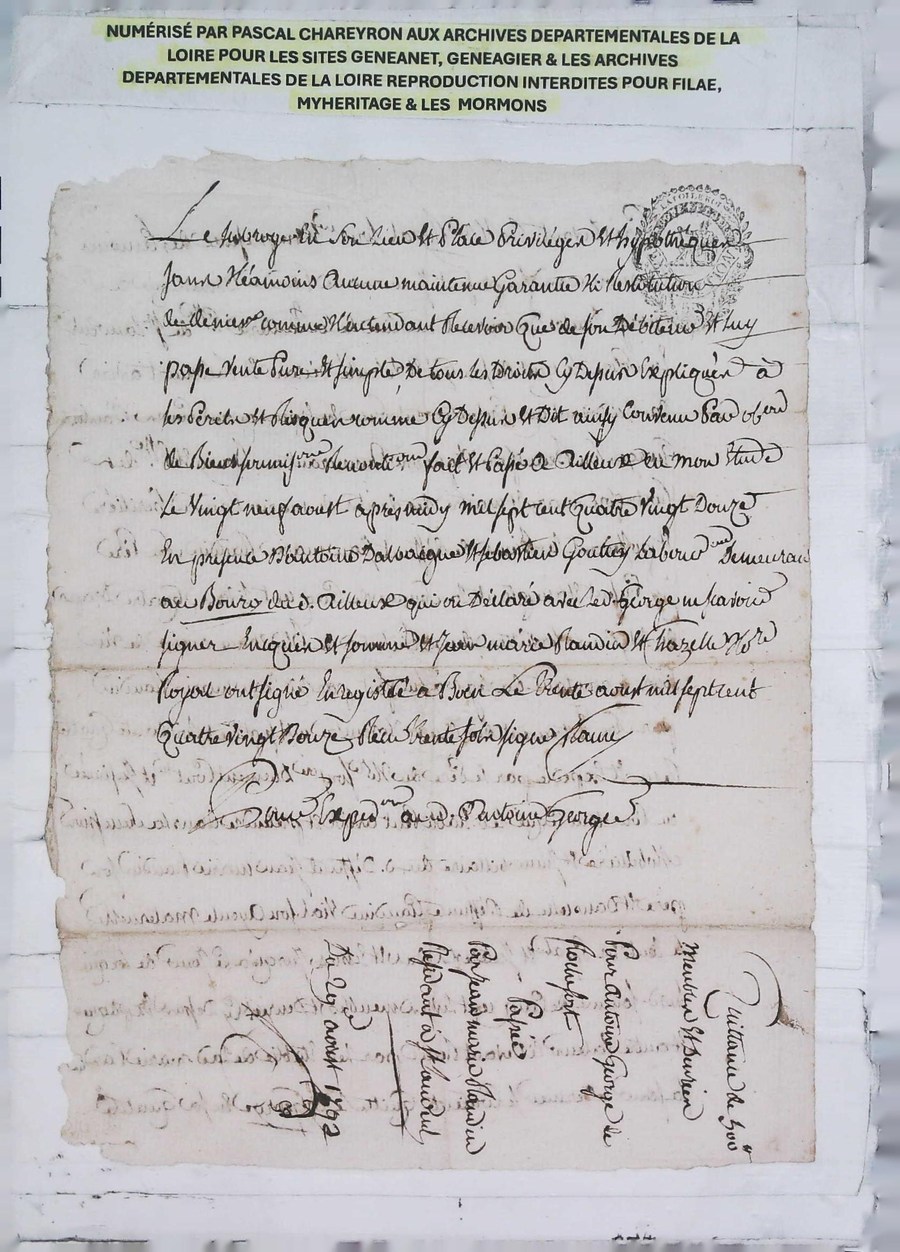 NUMÉRISÉ PAR PASCAL CHAREYRON AUX ARCHIVES DEPARTEMENTALES DE LA
LOIRE POUR LES SITES GENEANET, GENEAGIER & LES ARCHIVES
DEPARTEMENTALES DE LA LOIRE REPRODUCTION INTERDITES POUR FILAE,
MYHERITAGE & LES MORMONS
Le subroge En son Lieu et Place Privileges et hypotheques
sans Néamoins Aucune maintenue Garantie Ni Restitution
de deniers comme N'entendant Recevoir que de son Débiteur et luy
passe vente Pure et simple De tous les Droits Cy Dessus Expliqués à
ses Périls et Risques comme Cy Dessus est Dit ainsy Convenu Par obon
de Biens soumison Renontion fait et Passé a Ailleux en mon Etude
Le Vingt neuf aoust après midy mil sept cent Quatre Vingt Douze
En presence Antoine et Sebastien Goutey Demeurant
au Bourg du d. Ailleux qui on Déclaré avec led. George ne scavoir
signer Enquis et sommé et Jean marie Plandin et Chazelle Nore
Royal ont signé Enregistré a Boen Le Trente aoust mil sept cent
Quatre Vingt Douze Reçu trente sols signé
Pour Expedon aud. Antoine George
Quittance de 300tt
Meubles et Denrées
Pour Antoine George de
Rochefort
Par jean marie Plandin
Residant à
Du 29 aoust 1792